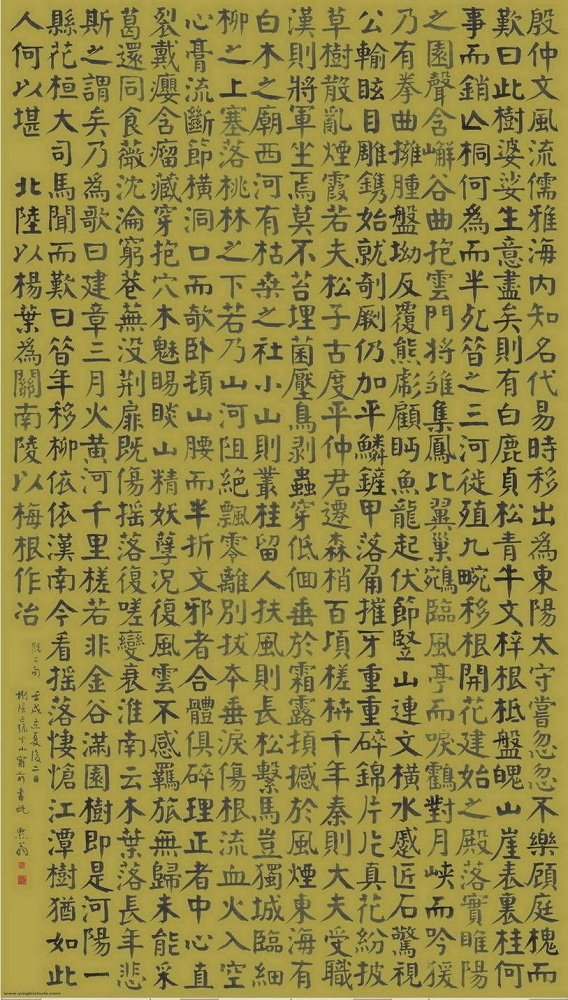 殷仲文風流儒雅海内知名代易時移出為東陽太守嘗忽忽不樂顧庭槐而
歎曰此樹婆娑生意盡矣則有白鹿貞松青牛文梓根柢盤魄山崖表裏桂何
事而銷亾桐何為而半死昔之三河徙殖九畹移根開花建始之殿落實睢陽
之園聲含嶰谷曲抱雲門將雛集鳳比翼巢鵷臨風亭而唳鶴對月峽而吟猨
乃有拳曲擁腫盤坳反覆熊彪顧眄魚龍起伏節竪山連文橫水蹙匠石驚視
公輸眩目雕鐫始就剞劂仍加平鱗鏟甲落角摧牙重重碎錦片片真花紛披
草樹散亂煙霞若夫松子古度平仲君遷森梢百頃槎枿千年秦則大夫受職
漢則將軍坐焉莫不苔埋菌壓鳥剥蟲穿低佪垂於霜露頓撼於風煙東海有
白木之廟西河有枯桑之社小山則叢桂留人扶風則長松繫馬豈獨城臨細
柳之上塞落桃林之下若乃山河阻絕飄零離別拔本垂淚傷根流血火入空
心膏流斷節橫洞口而欹卧頓山腰而半折文邪者合體俱碎理正者中心直
裂戴癭含瘤藏穿抱穴木魅賜睒山精妖孽況復風雲不感羈旅無歸未能采
葛還同食薇沈淪窮巷蕪没荆扉既傷搖落復嗟變衰淮南云木葉落長年悲
斯之謂矣乃為歌曰建章三月火黄河千里槎若非金谷滿園樹即是河陽一
縣花桓大司馬聞而歎曰昔年移柳依依漢南今看搖落悽愴江潭樹猶如此
人何以堪 北陸以楊葉為關南陵以梅根作冶
脱二句 壬戌立夏後二日
www.yingbishufa.com